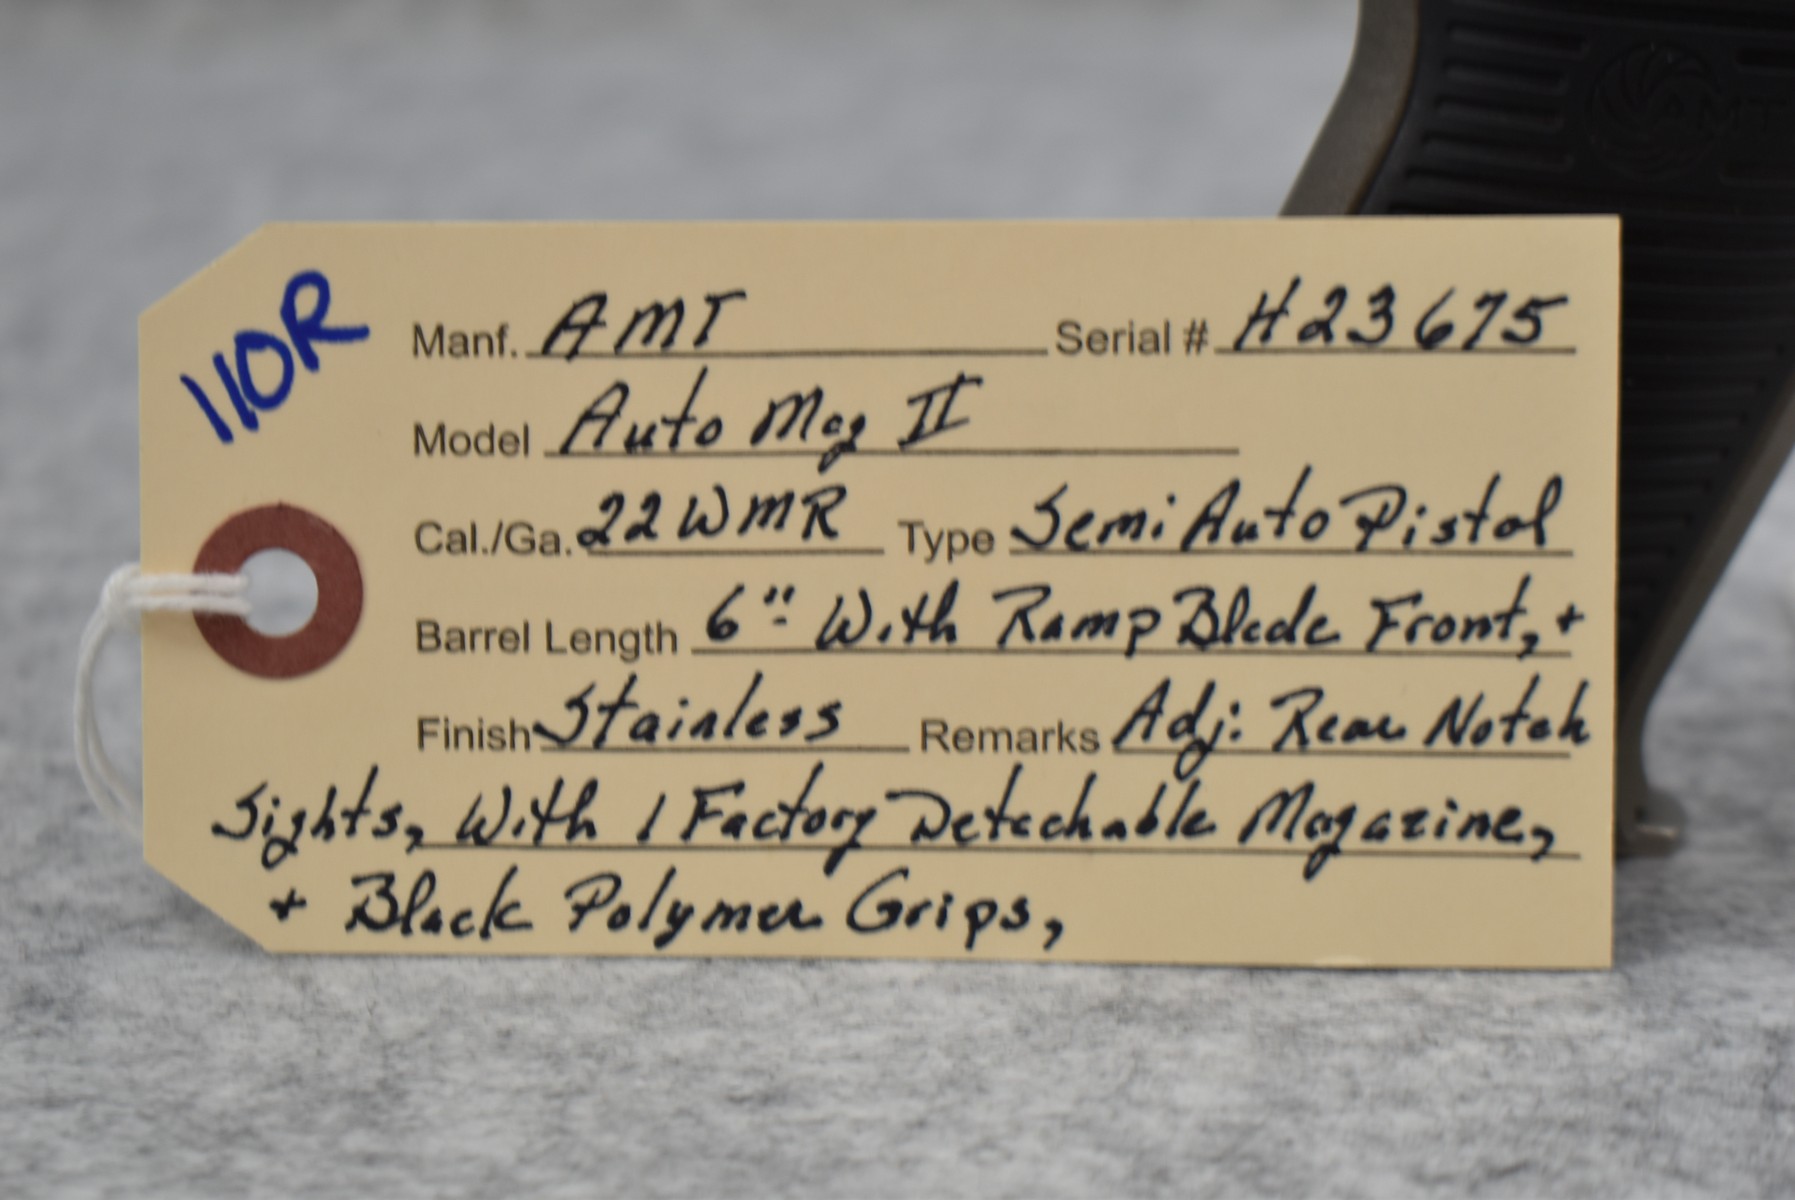 110R
Manf. AMT Serial # H23675
Model Auto Mag II
Cal./Ga. 22WMR Type Semi Auto Pistol
Barrel Length 6" With Ramp Blade Front, +
Finish Stainless Remarks Adj: Rear Notch
Sights, With 1 Factory Detachable Magazine,
+ Black Polymer Grips,
AMT